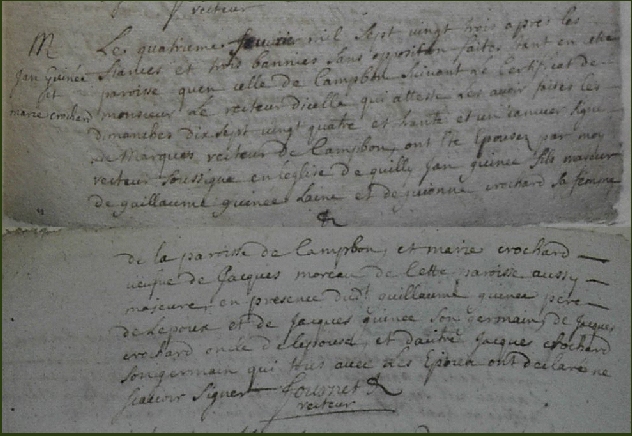 recteur
M
Jan Guinée
et
marie crochard
Le quatrieme fevrie mil Sept vingt trois apres les
fiances et trois bannies sans oposition faites tant en cette
paroisse quen celle de Campbon suivant Le Certificat de
monsieur Le recteur dicelle qui atteste Les avoir faites les
dimanches dix sept vingt quatre et trante et un janvier signé
de Marques recteur de Campbon, ont été Epousez par moy
recteur Soussigné en leglise de quilly Jan guinée fils majeur
de guillaume guinée Laine et de guionne crochard sa femme
de la paroisse de Campbon, et marie crochard
veufve de Jacques moreau de Cette paroisse aussy
majeure, en presence dudt guillaume guinée pere
de Lepoux et de Jacques guinée son germain, de Jacques
crochard oncle de lepouse, et dautre Jacques crochard
son germain qui tous avec les Epoux ont declare ne
scavoir Signer fournet
recteur